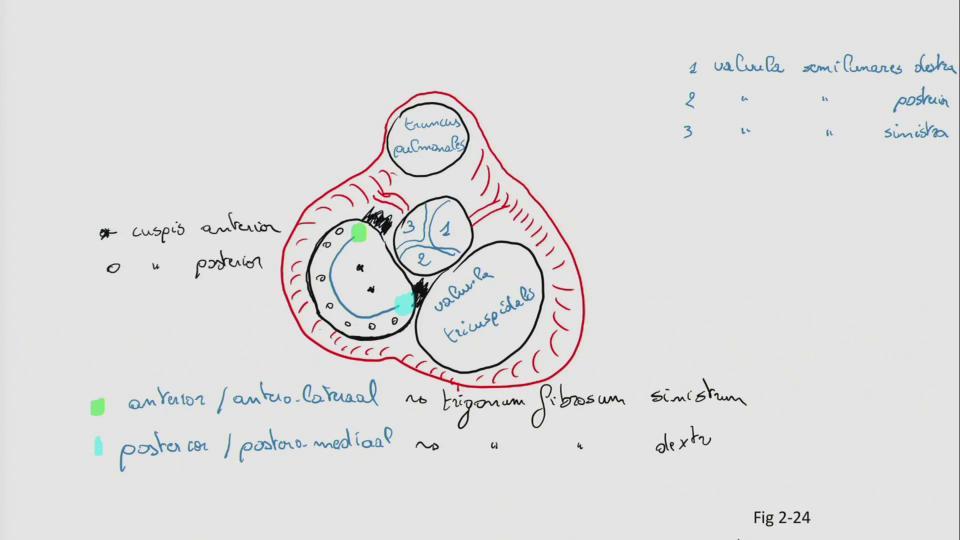 1 valvula semilunares dextra
2 " " posterior
3 " " sinistra
truncus
pulmonales
* cuspis anterior
o " posterior
3 1
2
valvula
tricuspidales
anterior / antero-lateraal ~ trigonum fibrosum sinistrum
posterior / postero-mediaal ~ " " dextr
Fig 2-24